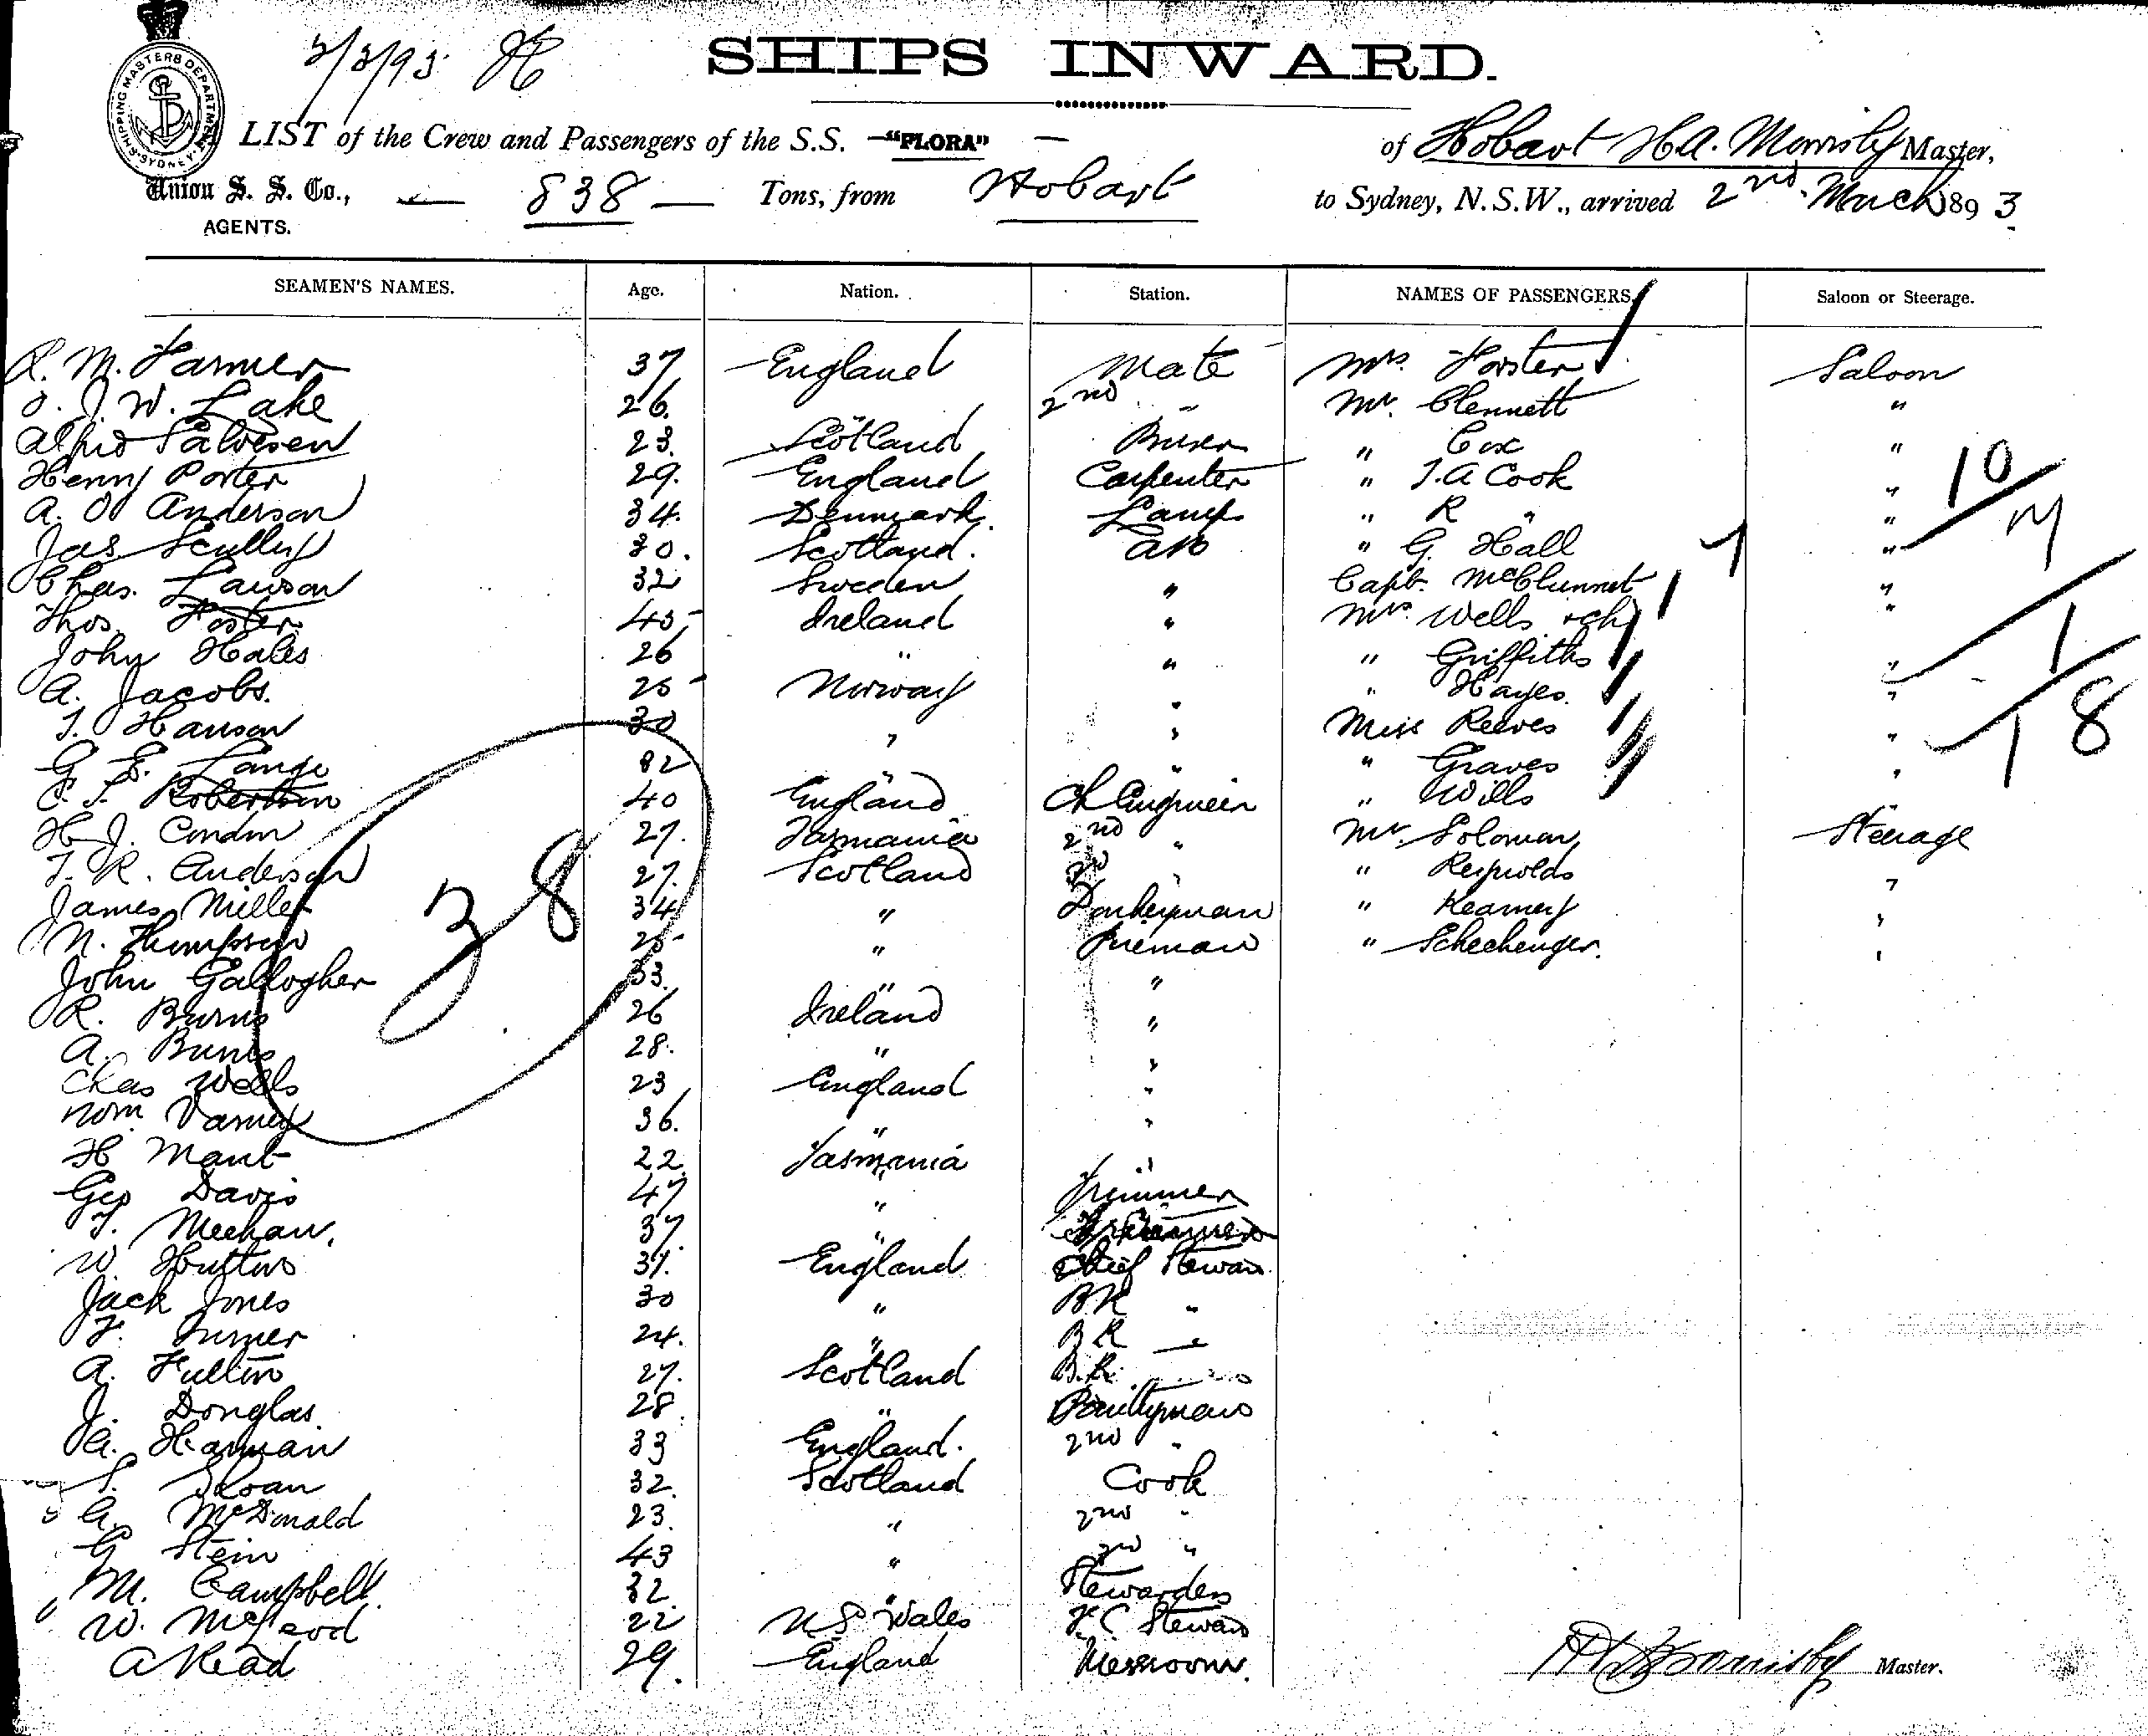 SHIPPING MASTERS DEPARTMENT SYDNEY
2/3/93
SHIPS INWARD.
LIST of the Crew and Passengers of the S.S. "FLORA" of Hobart H.A. Morrisby Master,
Union S. S. Co., 838 Tons, from Hobart to Sydney, N.S.W., arrived 2nd March 1893
AGENTS.
SEAMEN'S NAMES. Age. Nation. Station. NAMES OF PASSENGERS. Saloon or Steerage.
R. M. Farmer 37 England Mate Mrs. Forster Saloon
J. W. Lake 26. " 2nd " Mr. Clennett "
Alfrd Salvesen 23. Scotland " Cox "
Henry Porter 29. England Carpenter " T. A Cook "
A. O Anderson 34. Denmark Lamps " R " "
Jas Scully 30. Scotland. AB " G. Hall "
Chas. Lawson 32 Sweden " Capt. McClunnet "
Thos. Foster 45 Ireland " Mrs. Wells + ch "
John Hales 26 " " " Griffiths "
A. Jacobs. 25 Norway " " Hayes. "
T. Hanson 30 " " Miss Reeves "
G. E. Lange 32 " " " Graves "
C. T. Robertson 40 England Ch Engineer " Wills "
H. J. Condon 27. Tasmania 2nd " Mr. Soloman Steerage
T. R. Anderson 27. Scotland 3rd " " Reynolds "
James Miller 34 " Donkeyman " Kearney "
N. Thompson 25 " Fireman " Schechenger. "
John Gallogher 33. " "
R. Burns 26 Ireland "
A. Burns 28. " "
Chas Wells 23 England "
Wm. Varney 36. " "
H Mant 22. Tasmania "
Geo Davis 47 " Trimmer
T. Meehan. 37. " Trimmer
W. Hutton 37. England Chief Steward.
Jack Jones 30 " BR "
F. Turner 24. " BR "
A. Fullin 27. Scotland B.R.
J. Douglas. 28. " Pantryman
G. Harman 33 England. 2nd "
S. Sloan 32. Scotland Cook
G. McDonald 23. " 2nd "
G Stein 43 " 3rd "
M. Campbell. 32. " Stewardess
W. McLeod 22 N S Wales F.C. Steward
A Read 29. England Messroom.
38
10
7
1
18
HA Morrisby Master.